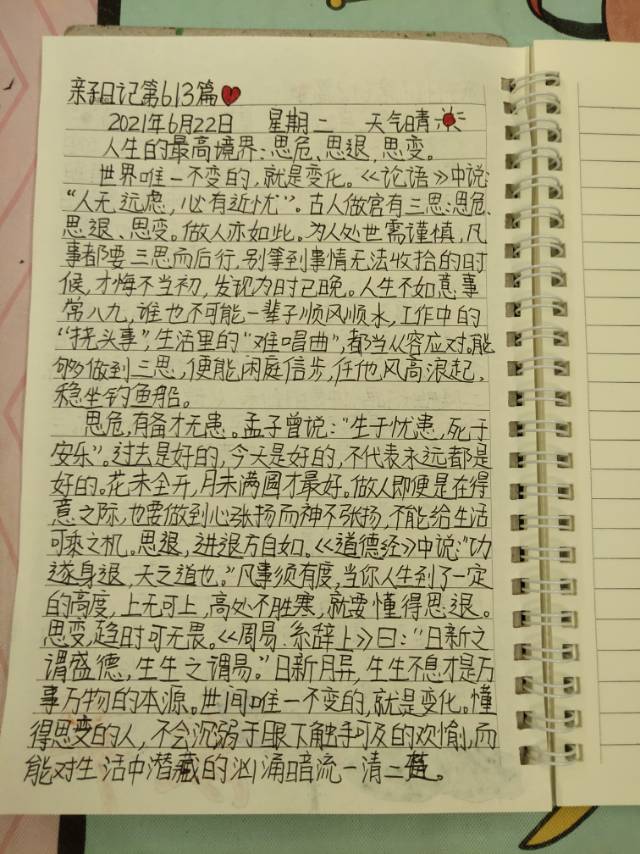 亲子日记第613篇
2021年6月22日 星期二 天气晴
人生的最高境界:思危、思退、思变。
世界唯一不变的,就是变化。《论语》中说:
“人无远虑,必有近忧”。古人做官有三思:思危、
思退、思变。做人亦如此。为人处世需谨慎,凡
事都要三思而后行,别拿到事情无法收拾的时
候,才悔不当初,发现为时已晚。人生不如意事
常八九,谁也不可能一辈子顺风顺水,工作中的
“挠头事”,生活里的“难唱曲”,都当从容应对。能
够做到三思,便能闲庭信步,任他风高浪起,
稳坐钓鱼船。
思危,有备才无患。孟子曾说:“生于忧患,死于
安乐”。过去是好的,今天是好的,不代表永远都是
好的。花未全开,月未满圆才最好。做人即便是在得
意之际,也要做到心张扬而神不张扬,不能给生活
可乘之机。思退,进退方自如。《道德经》中说:“功
遂身退,天之道也。”凡事须有度,当你人生到了一定
的高度,上无可上,高处不胜寒,就要懂得思退。
思变,趋时可无畏。《周易·系辞上》曰:“日新之
谓盛德,生生之谓易。”日新月异,生生不息才是万
事万物的本源。世间唯一不变的,就是变化。懂
得思变的人,不会沉弱于眼下触手可及的欢愉,而
能对生活中潜藏的汹涌暗流一清二楚。